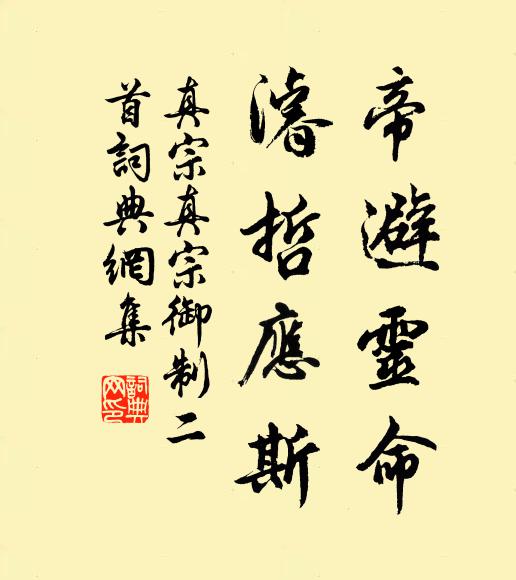 帝避靈命
濬哲應斯
真宗真宗御制二
首詞典網集
詞典
网印